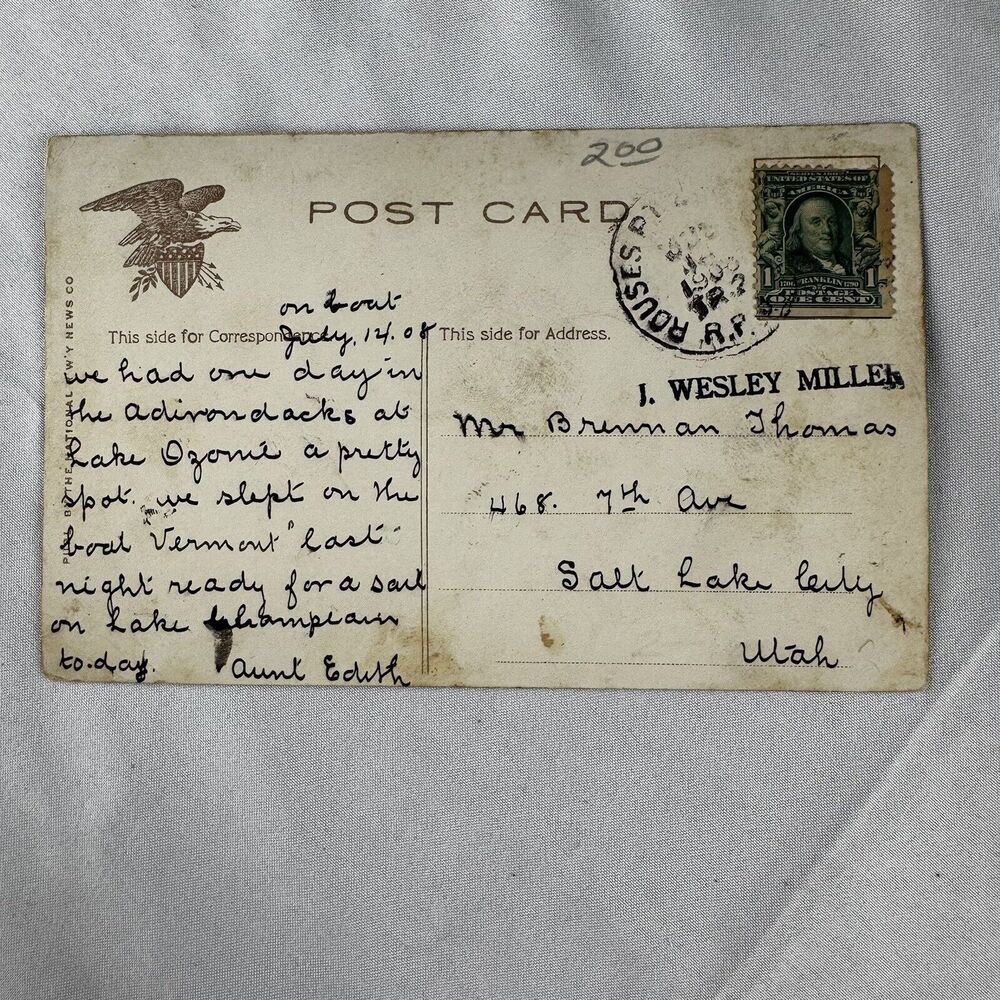 200
POST CARD
ROUSES P
1908
TR 2
R.P.
SERIES 1902
UNITED STATES OF
AMERICA
1 FRANKLIN 1
1706 1790
POSTAGE
ONE CENT
PUBL BY THE NATIONAL NEWS CO
on boat
This side for Correspondence
July, 14. 08
This side for Address.
we had one day in
the Adirondacks at
Lake Ozonie a pretty
spot. we slept on the
boat Vermont" last
night ready for a sail
on Lake Champlain
to-day.
Aunt Edith
J. WESLEY MILLER
Mr Brennan Thomas
468. 7th Ave
Salt Lake City
Utah